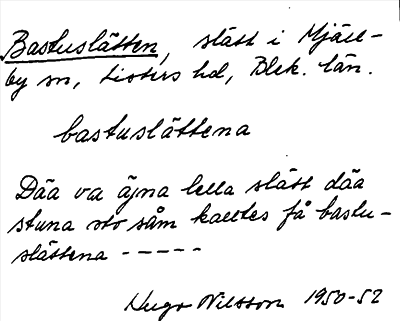 Bastuslätten, slätt i Mjäll-
by sn, Listers hd, Blek. län.
bastuslättena
Däa va äjna lella slätt däa
stuna sto såm kalltes få bastu-
slättena -----
Hugo Nilsson 1950-52